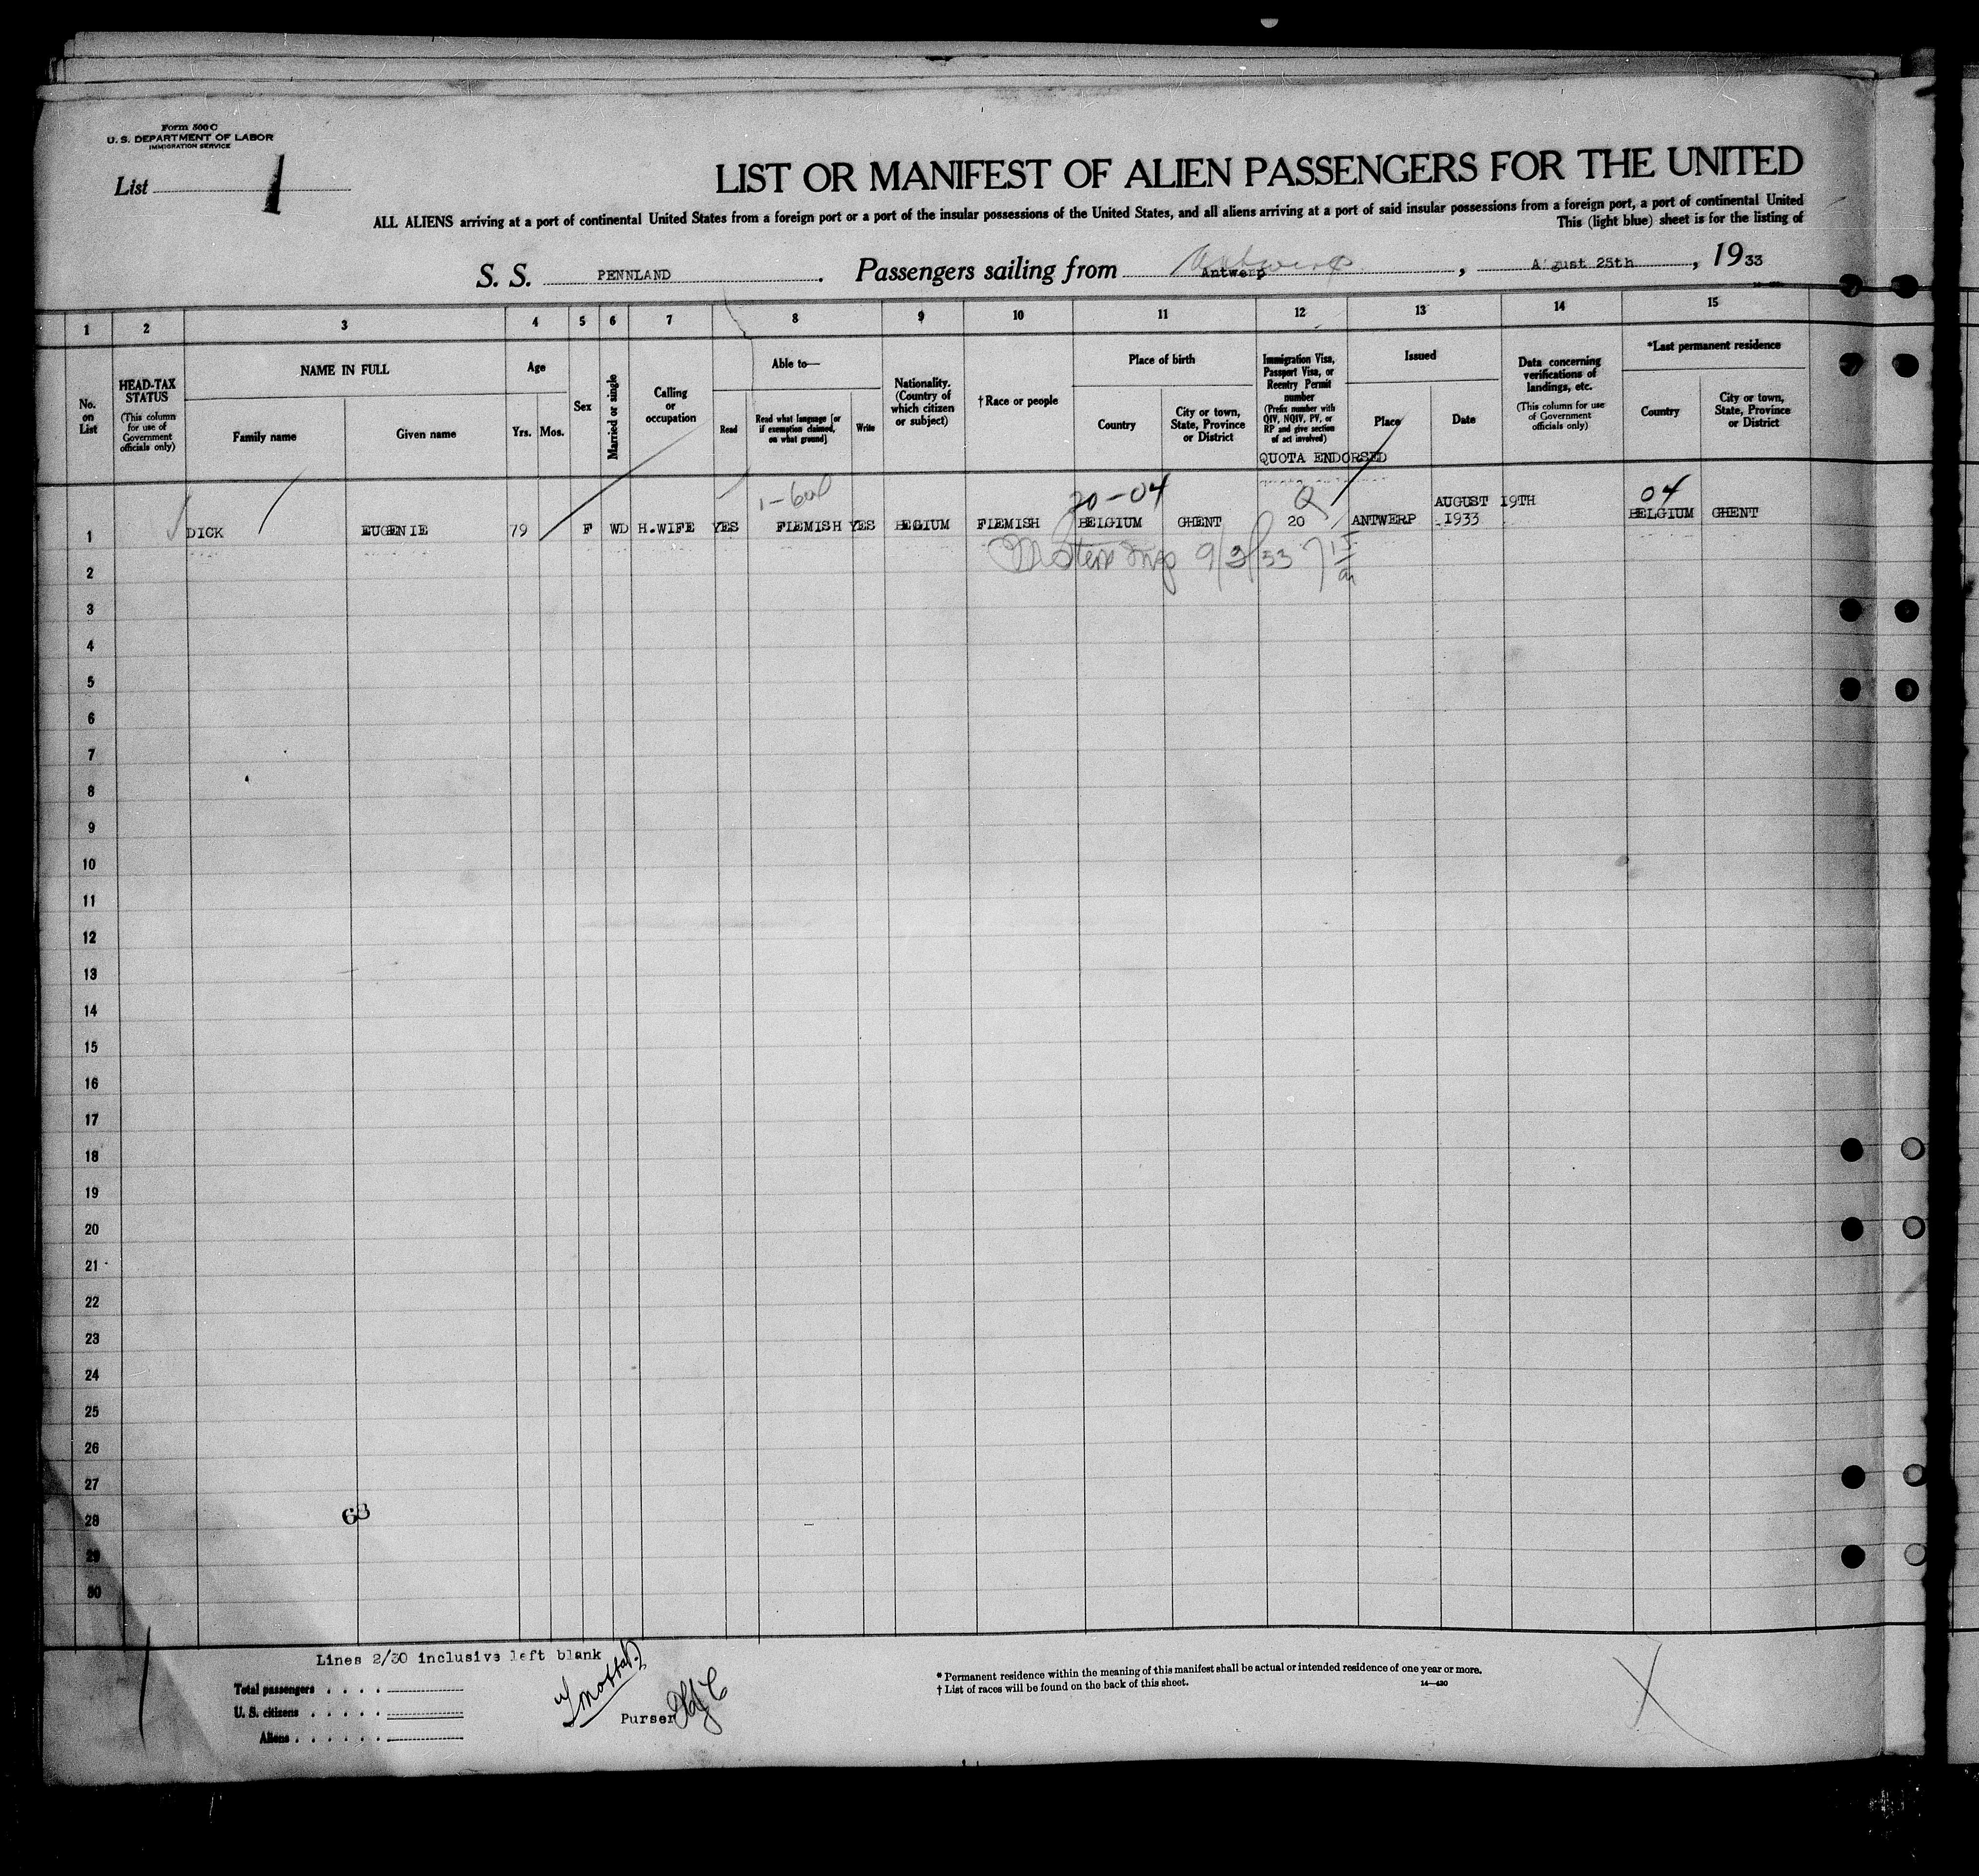 Form 500 C
U. S. DEPARTMENT OF LABOR
IMMIGRATION SERVICE
List 1
LIST OR MANIFEST OF ALIEN PASSENGERS FOR THE UNITED
ALL ALIENS arriving at a port of continental United States from a foreign port or a port of the insular possessions of the United States, and all aliens arriving at a port of said insular possessions from a foreign port, a port of continental United
This (light blue) sheet is for the listing of
S. S. PENNLAND. Passengers sailing from Antwerp Antwerp, August 25th, 1933
1 2 3 4 5 6 7 8 9 10 11 12 13 14 15
No. on List
HEAD-TAX STATUS
(This column for use of Government officials only)
NAME IN FULL
Family name
Given name
Age
Yrs. Mos.
Sex
Married or single
Calling or occupation
Able to—
Read
Read what language [or if exemption claimed, on what ground]
Write
Nationality. (Country of which citizen or subject)
† Race or people
Place of birth
Country
City or town, State, Province or District
Immigration Visa, Passport Visa, or Reentry Permit number
(Prefix number with QIV, NQIV, PV, or RP and give section of act involved)
QUOTA ENDORSED
Issued
Place
Date
Data concerning verifications of landings, etc.
(This column for use of Government officials only)
*Last permanent residence
Country
City or town, State, Province or District
20-04 Q AUGUST 19TH 04
1 DICK EUGENIE 79 F WD H.WIFE YES FLEMISH YES BEGIUM FLEMISH BELGIUM GHENT 20 ANTWERP 1933 BELGIUM GHENT
9/2/33
2
3
4
5
6
7
8
9
10
11
12
13
14
15
16
17
18
19
20
21
22
23
24
25
26
27
28
63
29
30
Lines 2/30 inclusive left blank
Total passengers . . . .
U. S. citizens . . . . .
Aliens . . . . . .
Purser
* Permanent residence within the meaning of this manifest shall be actual or intended residence of one year or more.
† List of races will be found on the back of this sheet.
14—430